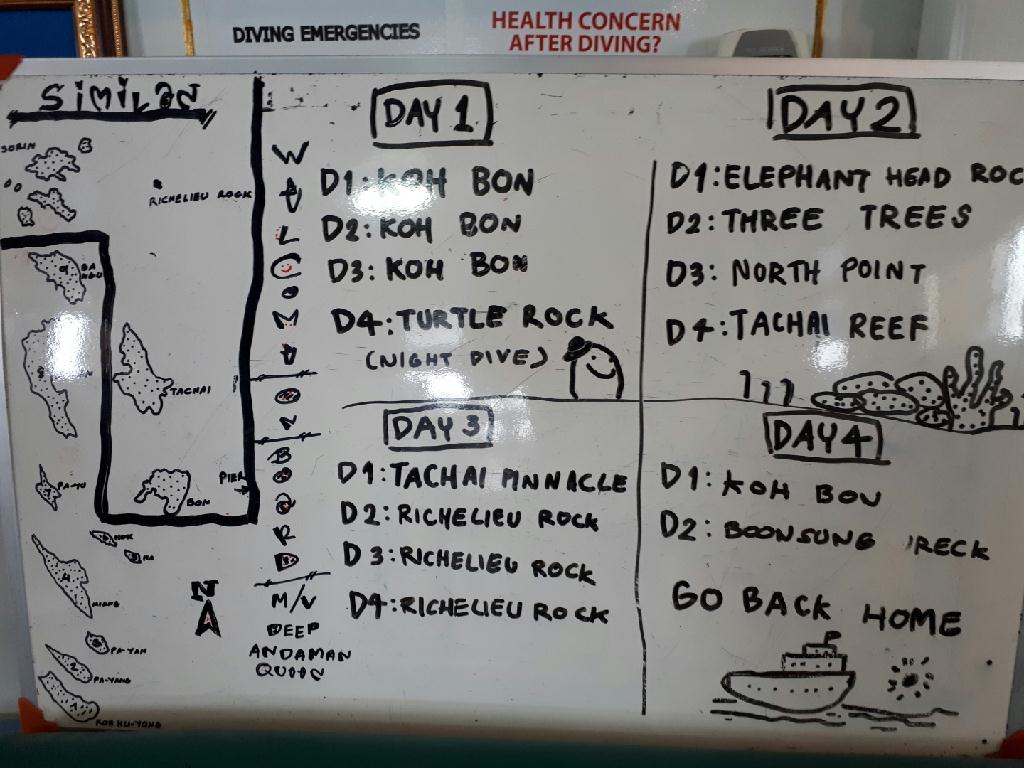 DIVING EMERGENCIES
HEALTH CONCERN
AFTER DIVING?
SiMiLaN
SURIN
RICHELIEU ROCK
TACHAI
PA-YU
BON
PIER
PA-YAN
PA-YANG
KOH HU-YONG
N
WALCOMA
ON
BOARD
M/V
DEEP
ANDAMAN
QUEEN
DAY 1
D1: KOH BON
D2: KOH BON
D3: KOH BON
D4: TURTLE ROCK
(NIGHT DIVE)
DAY 2
D1: ELEPHANT HEAD ROC
D2: THREE TREES
D3: NORTH POINT
D4: TACHAI REEF
DAY 3
D1: TACHAI PINNACLE
D2: RICHELIEU ROCK
D3: RICHELIEU ROCK
D4: RICHELIEU ROCK
DAY 4
D1: KOH BON
D2: BOONSUNG WRECK
GO BACK HOME